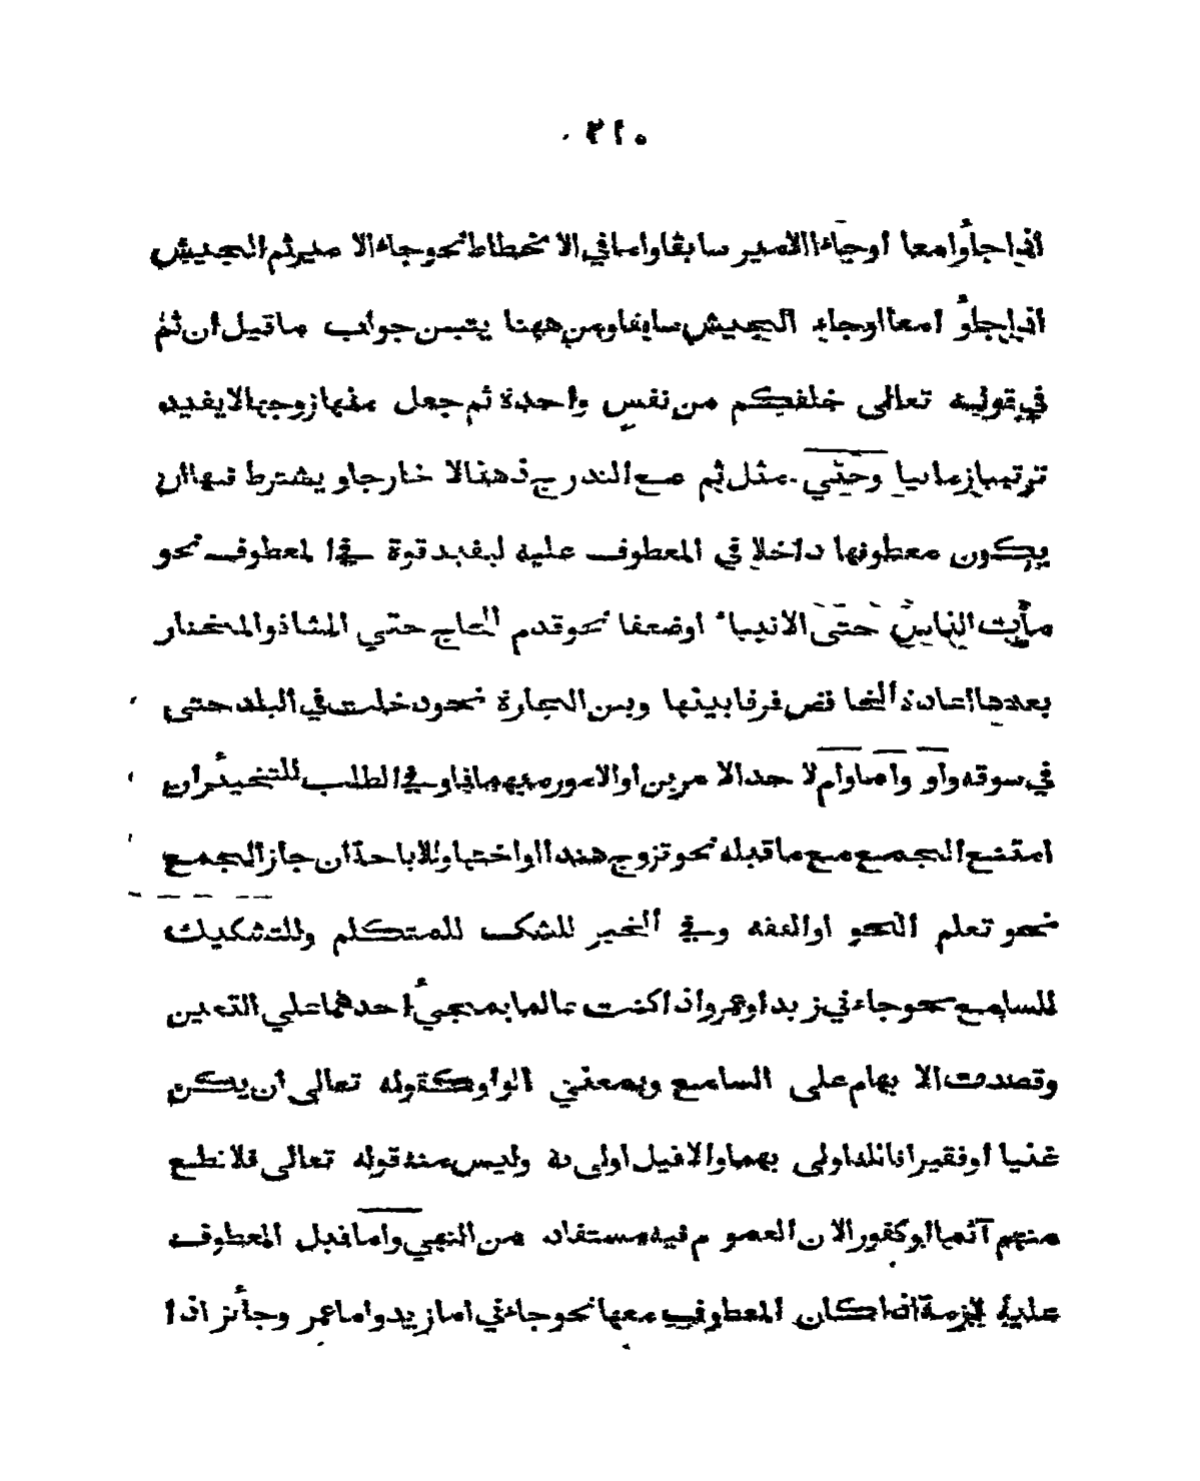 ٢١٥
اذا جاؤا معا او جاء الامير سابقا واما في الانحطاط نحو جاء الامير ثم الجيش
اذا جاؤا معا او جاء الجيش سابقا ومن ههنا يتبين جواب ما قيل ان ثم
في قوله تعالى خلقكم من نفس واحدة ثم جعل منها زوجها لا يفيد
ترتيبا زمانيا وحتي مثل ثم مع التدرج ذهنا لا خارجا ويشترط فيها ان
يكون معطوفها داخلا في المعطوف عليه ليفيد قوة في المعطوف نحو
مات الناس حتى الانبياء او ضعفا نحو قدم الحاج حتي المشاة والمختار
بعدها اعادة الخافض فرقا بينها وبين الجارة نحو دخلت في البلد حتى
في سوقه واو واما وام لاحد الامرين او الامور مبهما فاو في الطلب للتخيير ان
امتنع الجمع مع ما قبله نحو تزوج هندا او اختها وللاباحة ان جاز الجمع
نحو تعلم النحو او الفقه وفي الخبر للشك للمتكلم وللتشكيك
للسامع نحو جاءني زيد او عمر واذا كنت عالما بمجيء احدهما علي التعيين
وقصدت الابهام على السامع وبمعني الواو كقوله تعالى ان يكن
غنيا او فقيرا فالله اولى بهما والا قيل اولى به وليس منه قوله تعالى فلا تطع
منهم آثما او كفورا لان العموم فيه مستفاد من النهي واما قبل المعطوف
عليه لازمة اذا كان المعطوف معها نحو جاءني اما زيد واما عمر وجائز اذا